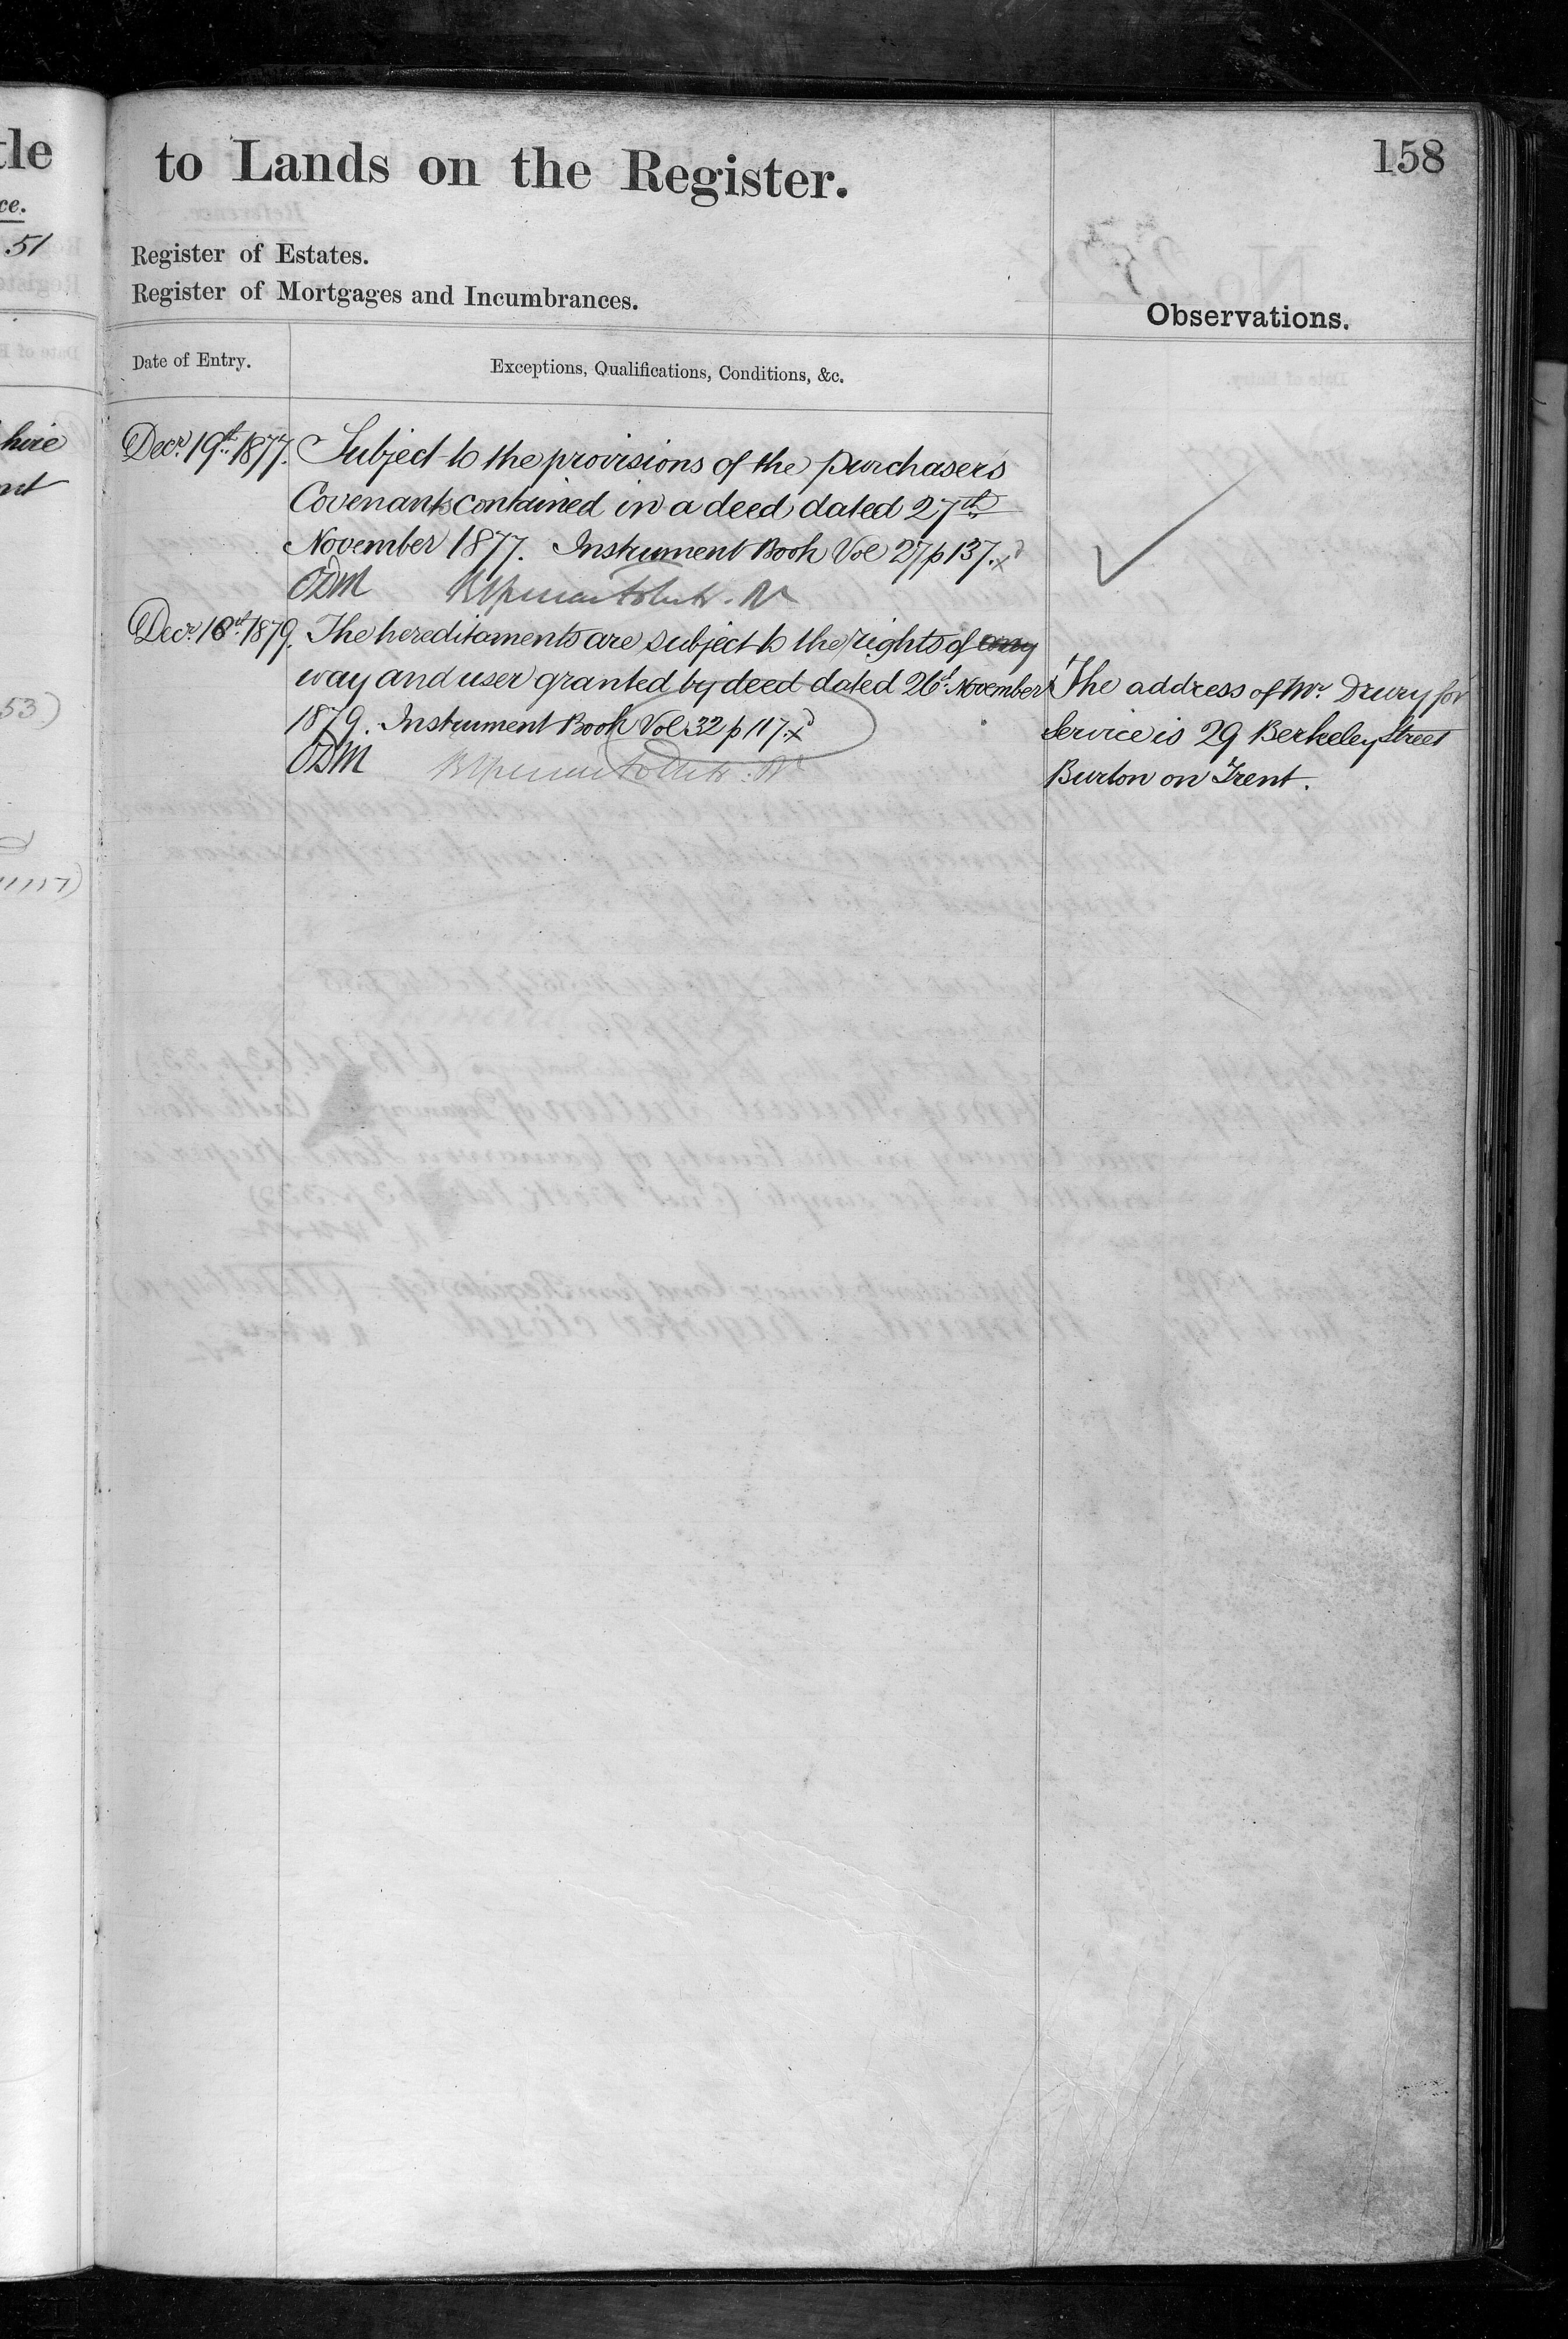 tle
ce.
51
hire
nt
53)
to Lands on the Register.
158
Register of Estates.
Register of Mortgages and Incumbrances.
Observations.
Date of Entry.
Exceptions, Qualifications, Conditions, &c.
Decr. 19th 1877. Subject to the provisions of the purchasers
Covenants contained in a deed dated 27th
November 1877. Instrument Book Vol 27 p 137. x
ODM
Decr. 16th 1879. The hereditaments are subject to the rights of any
way and user granted by deed dated 26th November
1879. Instrument Book Vol 32 p 117. x
ODM
The address of Mr. Drury for
Service is 29 Berkeley Street
Burton on Trent.